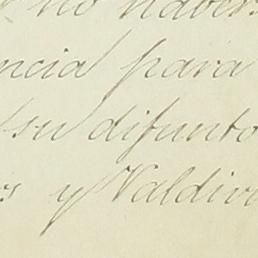 no haber
ncia para
su difunto
s y Valdivi